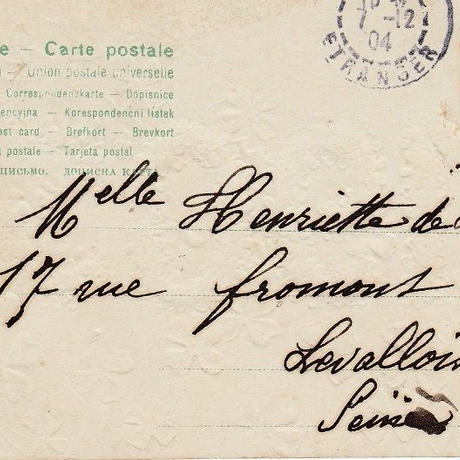 e – Carte postale
– Union postale universelle
Correspondenzkarte – Dopisnice
encyjna – Korespondenční lístek
ost card – Brefkort – Brevkort
a postale – Tarjeta postal
письмо. дописна карта
7-12
04
ETRANGER
Melle Henriette de
17 rue fromont
Levallois
Seine